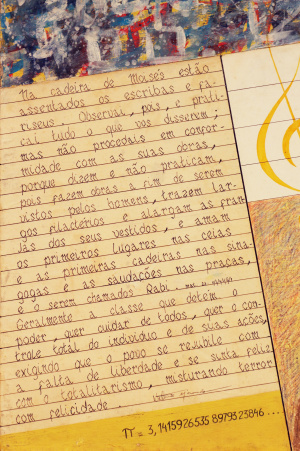 Na cadeira de Moisés estão
assentados os escribas e fa-
riseus. Observai, pois, e prati-
cai tudo o que vos disserem;
mas não procedais em confor-
midade com as suas obras,
porque dizem e não praticam,
pois fazem obras a fim de serem
vistos pelos homens, trazem lar-
gos filactérios e alargam as fran-
jas dos seus vestidos, e amam
os primeiros lugares nas ceias
e as primeiras cadeiras nas sina-
gogas e as saudações nas praças,
e o serem chamados Rabi...
Geralmente a classe que detém o
poder, quer cuidar de todos, quer o con-
trole total do indivíduo e de suas ações,
exigindo que o povo se rejubile com
a falta de liberdade e se sinta feliz
com o totalitarismo, misturando terror
com felicidade.
π = 3,1415926535 8979323846 ...